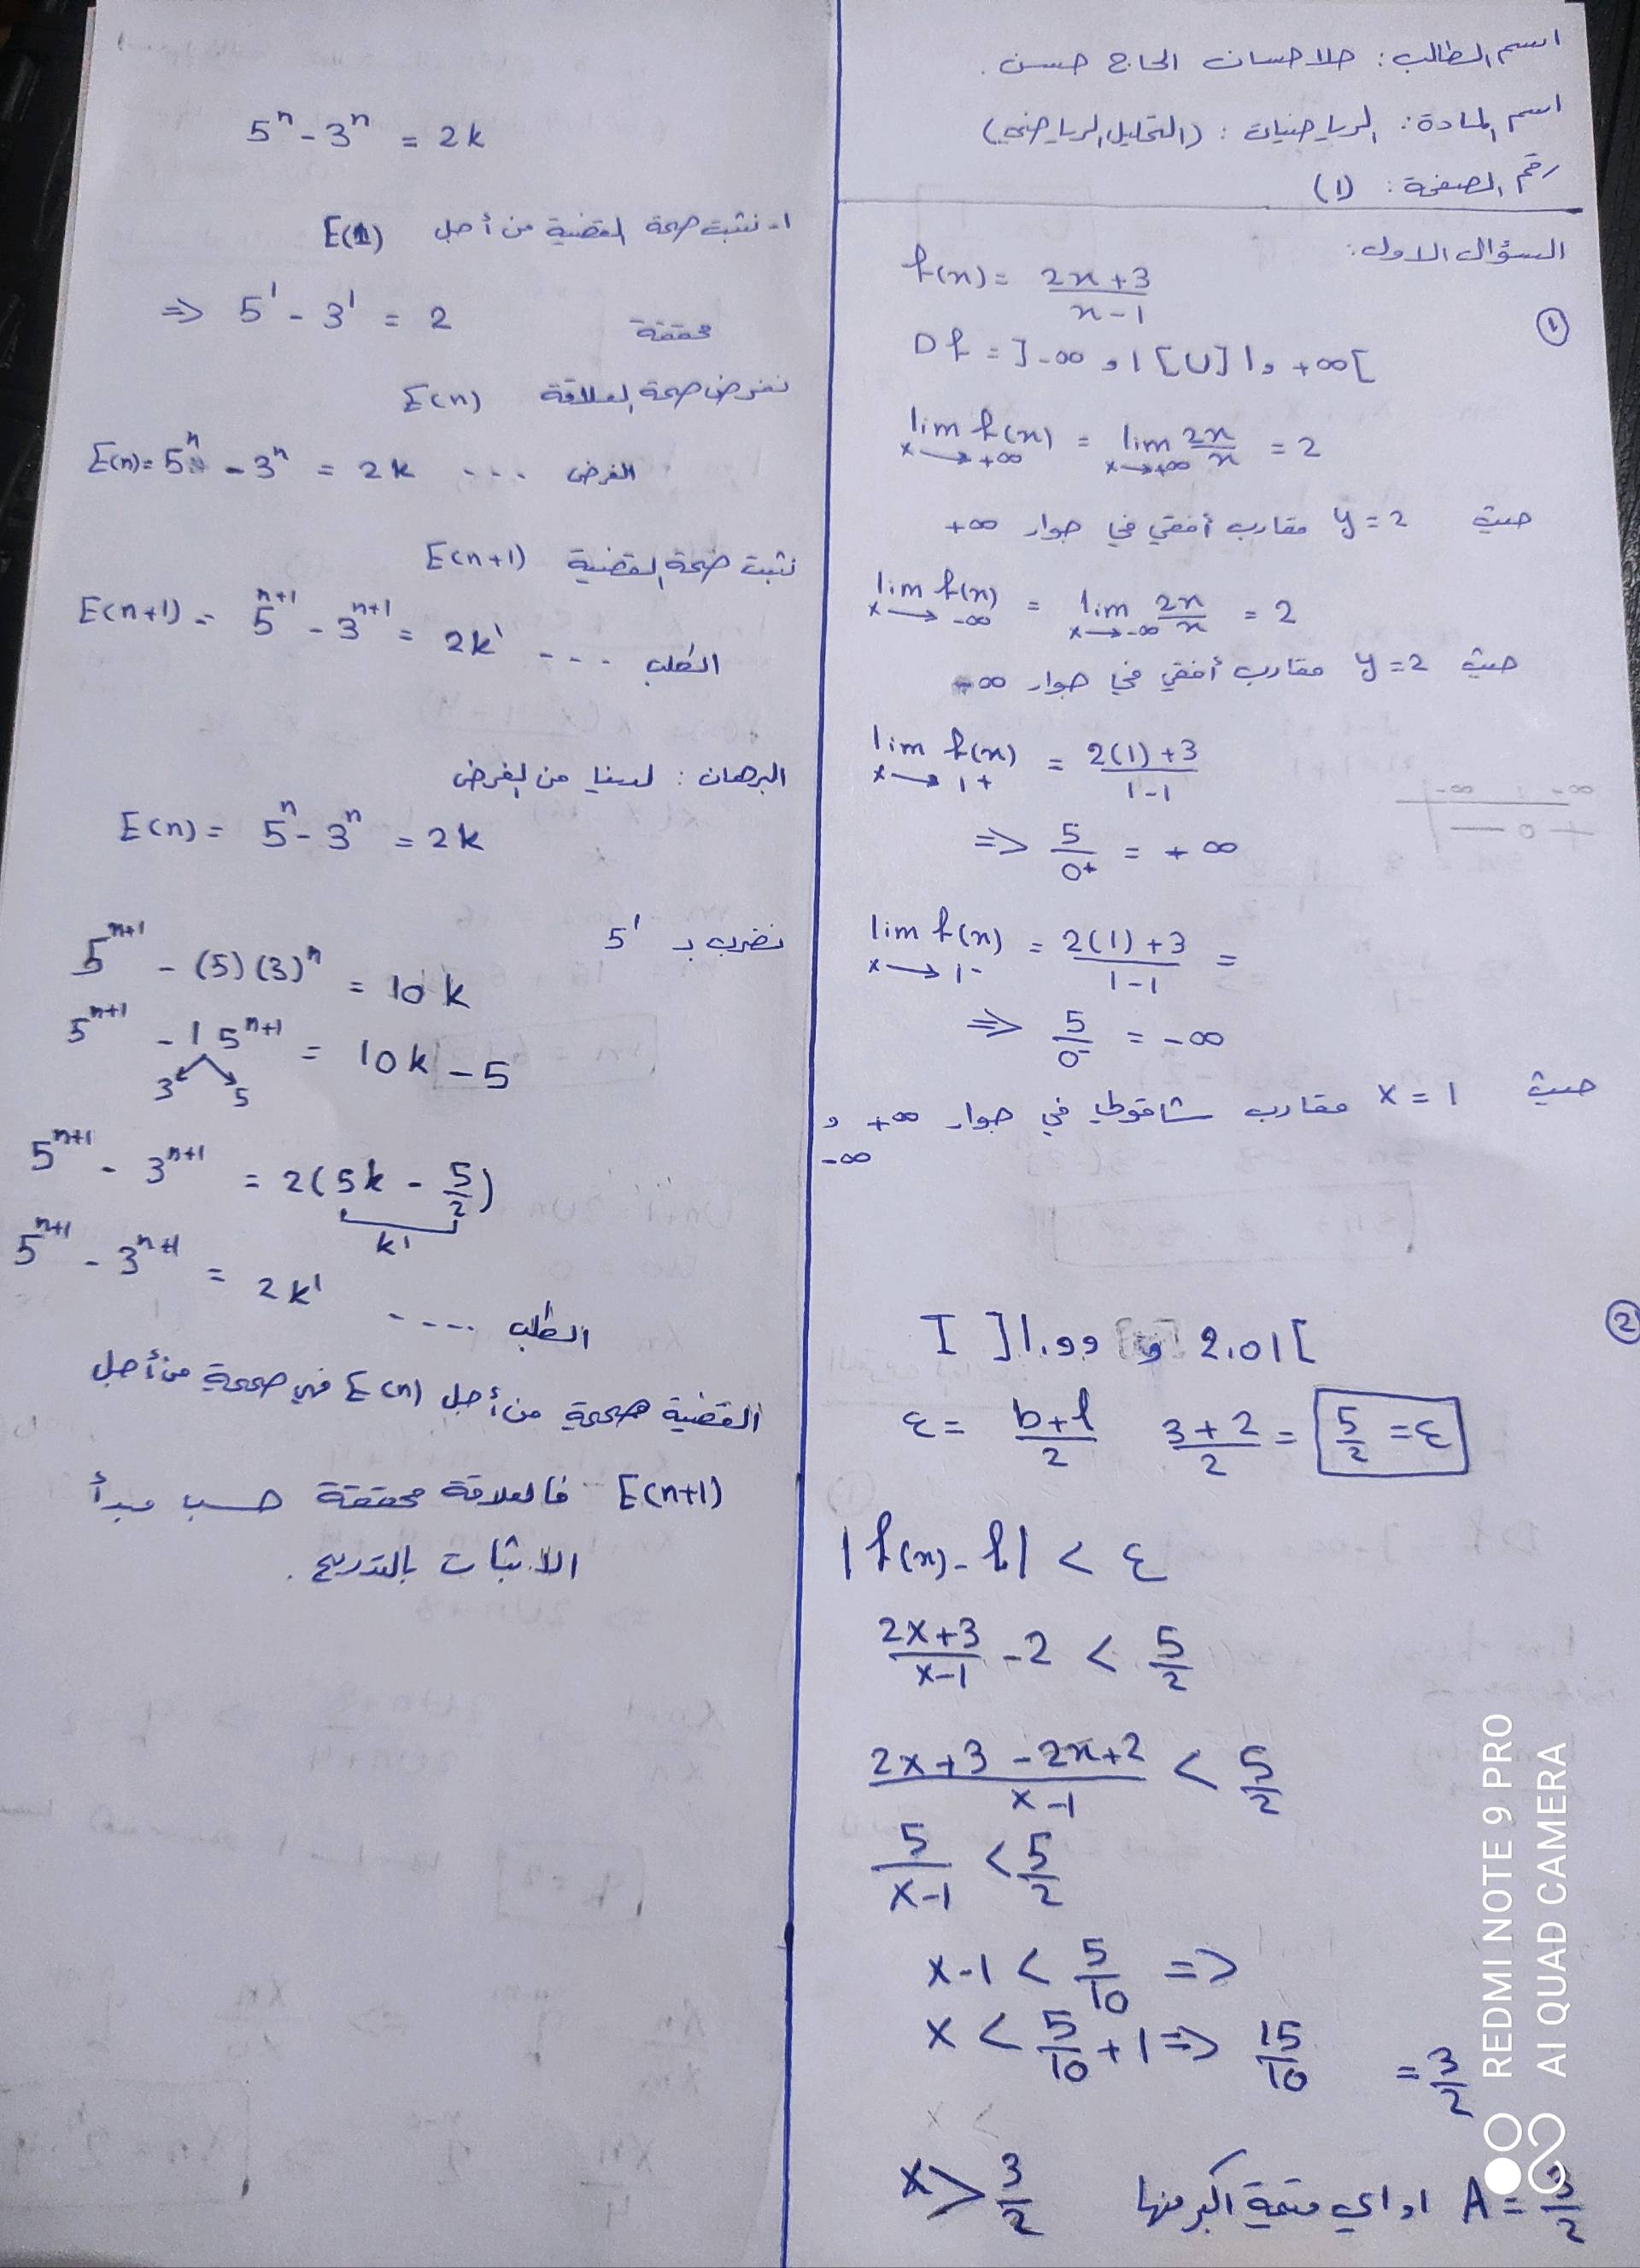 اسم الطالب: حلا حسان الحاج حسن.
اسم المادة: الرياضيات: (التحليل الرياضي)
رقم الصفحة: (1)
السؤال الاول:
f(x) = (2x+3)/(x-1)
①
Df = ]-∞ و 1[ U ]1 و +∞[
lim f(x) x→+∞ = lim x→+∞ 2x/x = 2
حيث y=2 مقارب أفقي في جوار +∞
lim f(x) x→-∞ = lim x→-∞ 2x/x = 2
حيث y=2 مقارب أفقي في جوار -∞
lim f(x) x→1+ = (2(1)+3)/(1-1)
=> 5/0+ = +∞
lim f(x) x→1- = (2(1)+3)/(1-1) =
=> 5/0- = -∞
حيث x=1 مقارب شاقولي في جوار +∞ و
-∞
②
I ]1.99 و 2.01[
ε = (b+l)/2 (3+2)/2 = 5/2 = ε
|f(x) - l| < ε
(2x+3)/(x-1) - 2 < 5/2
(2x+3-2x+2)/(x-1) < 5/2
5/(x-1) < 5/2
x-1 < 5/10 =>
x < 5/10 + 1 => 15/10 = 3/2
x > 3/2 A = 3/2 او اي قيمة اكبر منها
5ⁿ - 3ⁿ = 2k
1- نثبت صحة القضية من أجل E(1)
=> 5¹ - 3¹ = 2 محققة
نفرض صحة العلاقة E(n)
E(n) = 5ⁿ - 3ⁿ = 2k ... الفرض
نثبت صحة القضية E(n+1)
E(n+1) = 5ⁿ⁺¹ - 3ⁿ⁺¹ = 2k' ... الطلب
البرهان: لدينا من الفرض
E(n) = 5ⁿ - 3ⁿ = 2k
نضرب بـ 5¹
5ⁿ⁺¹ - (5)(3)ⁿ = 10k
5ⁿ⁺¹ - 15ⁿ⁺¹ = 10k - 5
3 5
5ⁿ⁺¹ - 3ⁿ⁺¹ = 2(5k - 5/2)
k'
5ⁿ⁺¹ - 3ⁿ⁺¹ = 2k' .... الطلب
القضية صحيحة من أجل E(n) فهي صحيحة من أجل
E(n+1) فالعلاقة محققة حسب مبدأ
الاثبات بالتدريج.
REDMI NOTE 9 PRO
AI QUAD CAMERA